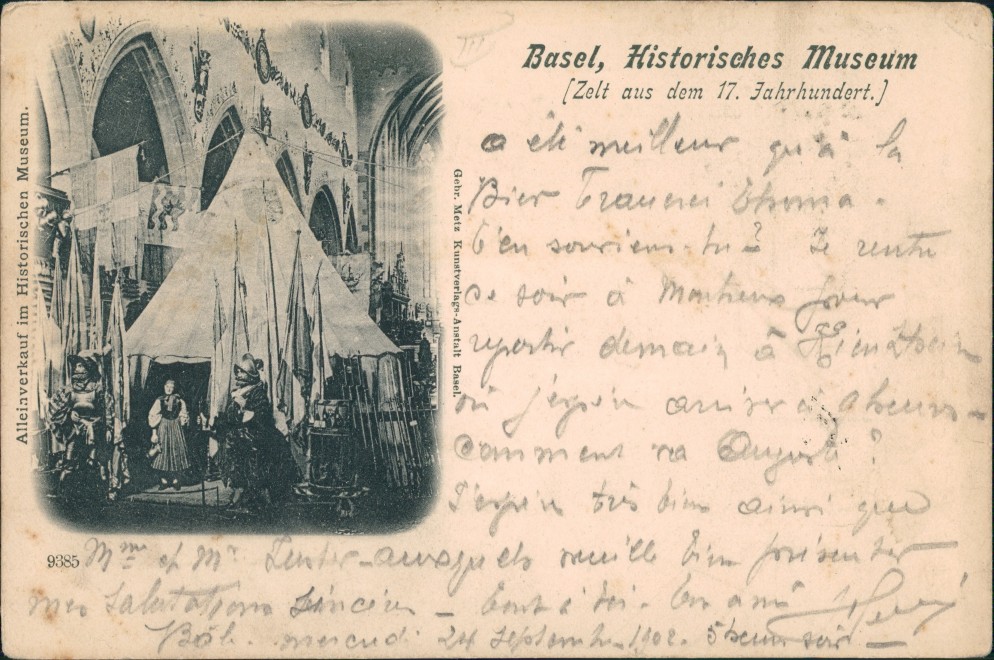 Basel, Historisches Museum
[Zelt aus dem 17. Jahrhundert.]
Alleinverkauf im Historischen Museum.
Gebr. Metz Kunstverlags-Anstalt Basel.
III
a été meilleur qu'à la
Bier
t'en souviens-tu? Je rentre
ce soir à pour
repartir demain à
où j'espère arriver à heures -
comment va Auguste?
J'espère très bien ainsi que
9385
Mme et Mr auxquels veuille bien présenter
mes salutations sincères - tout à toi. Ton ami
Bâle. mercredi 24 septembre 1902. 5 heures soir -